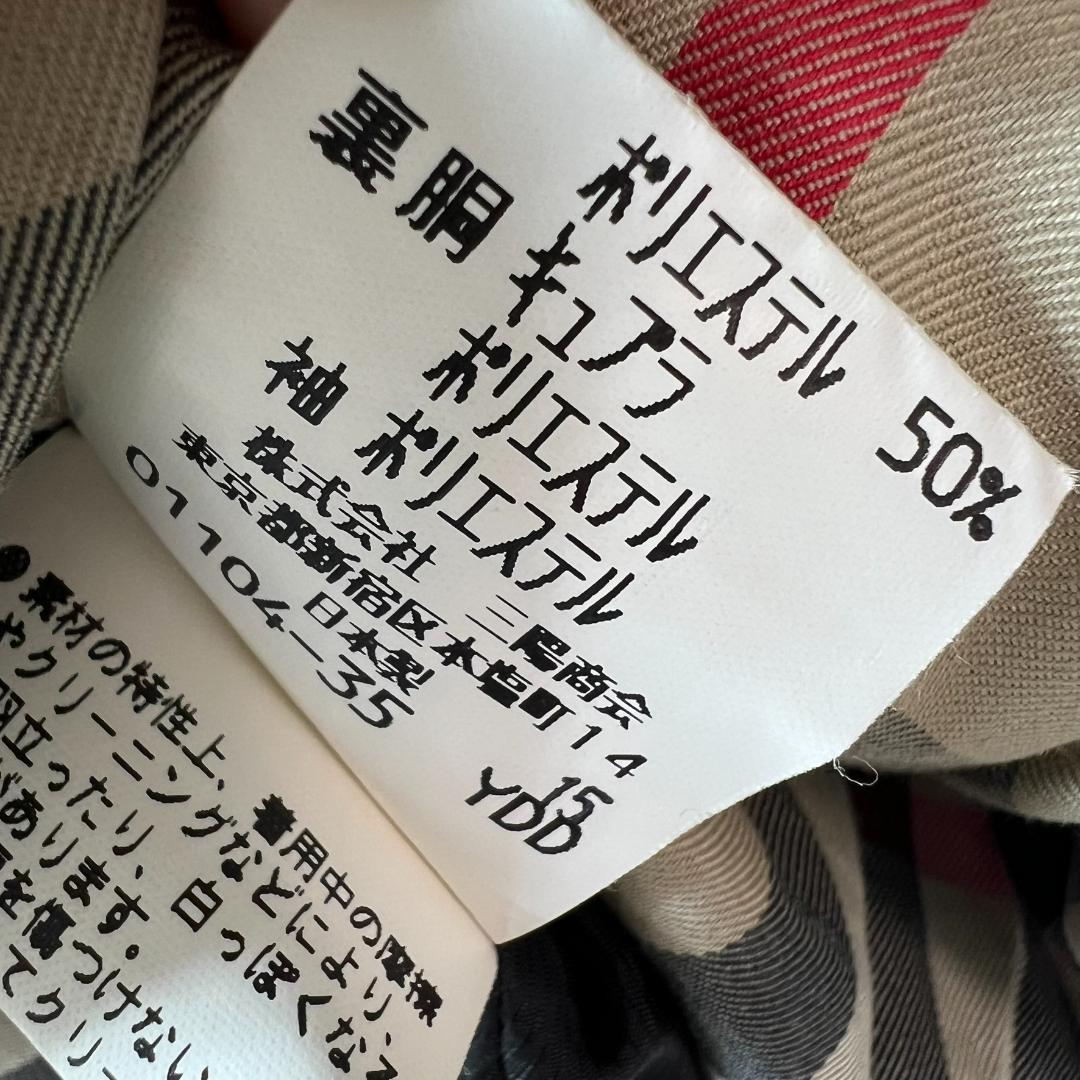 ポリエステル 50%
裏 胴 キュプラ
ポリエステル
袖 ポリエステル
株式会社 三陽商会
東京都新宿区本塩町14
日本製 15
01104-35 YDD
素材の特性上、着用中の摩擦
やクリーニングなどにより、
羽立ったり、白っぽくな
があります。
を傷つけない
てクリー